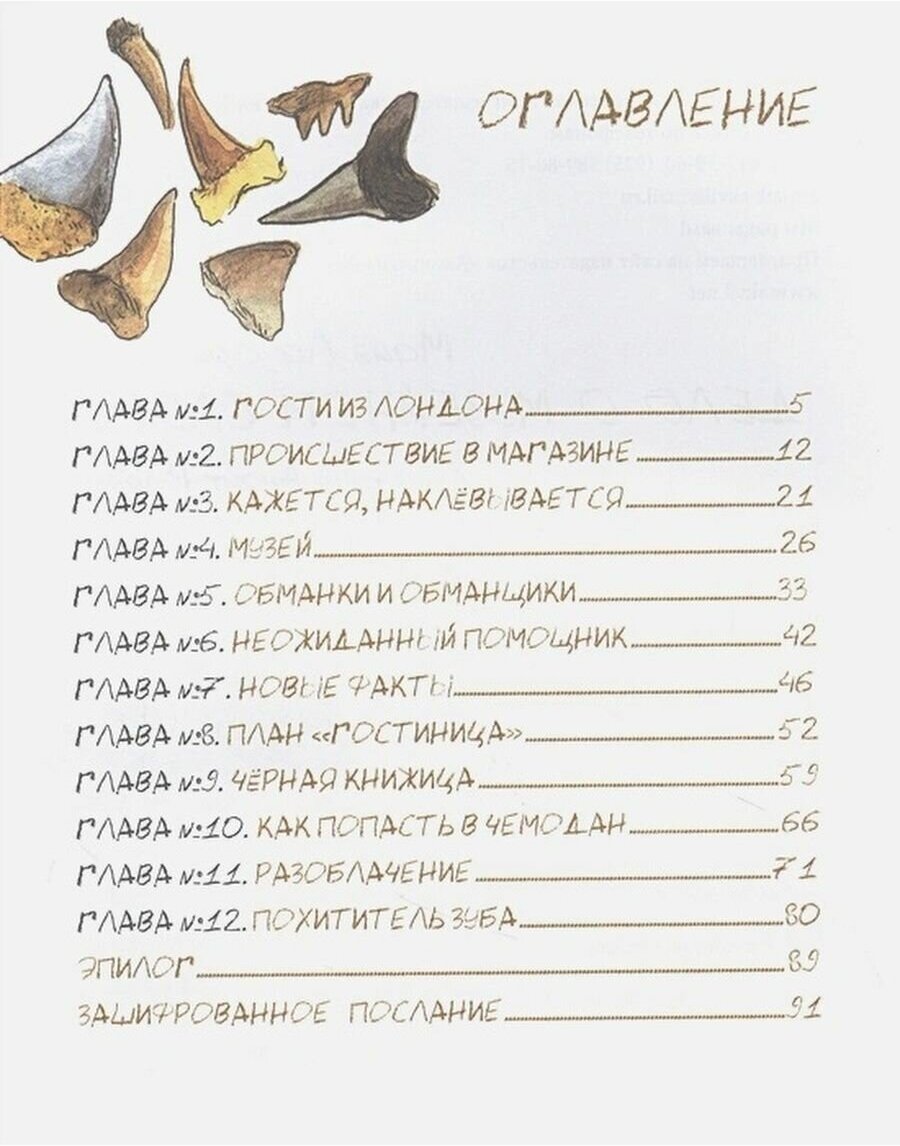 ОГЛАВЛЕНИЕ
ГЛАВА №1. ГОСТИ ИЗ ЛОНДОНА 5
ГЛАВА №2. ПРОИСШЕСТВИЕ В МАГАЗИНЕ 12
ГЛАВА №3. КАЖЕТСЯ, НАКЛЁВЫВАЕТСЯ 21
ГЛАВА №4. МУЗЕЙ 26
ГЛАВА №5. ОБМАНКИ И ОБМАНЩИКИ 33
ГЛАВА №6. НЕОЖИДАННЫЙ ПОМОЩНИК 42
ГЛАВА №7. НОВЫЕ ФАКТЫ 46
ГЛАВА №8. ПЛАН «ГОСТИНИЦА» 52
ГЛАВА №9. ЧЁРНАЯ КНИЖИЦА 59
ГЛАВА №10. КАК ПОПАСТЬ В ЧЕМОДАН 66
ГЛАВА №11. РАЗОБЛАЧЕНИЕ 71
ГЛАВА №12. ПОХИТИТЕЛЬ ЗУБА 80
ЭПИЛОГ 89
ЗАШИФРОВАННОЕ ПОСЛАНИЕ 91